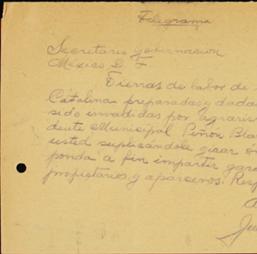 Telegrama
Secretario Gobernacion
Mexico D. F
Tierras de labor de
Catalina preparadas y dadas
sido invadidas por agraris
dente Municipal Peñon Bla
usted suplicandole girar ór
ponda a fin impartir gara
propietarios y aparceros. Resp
A
Ju